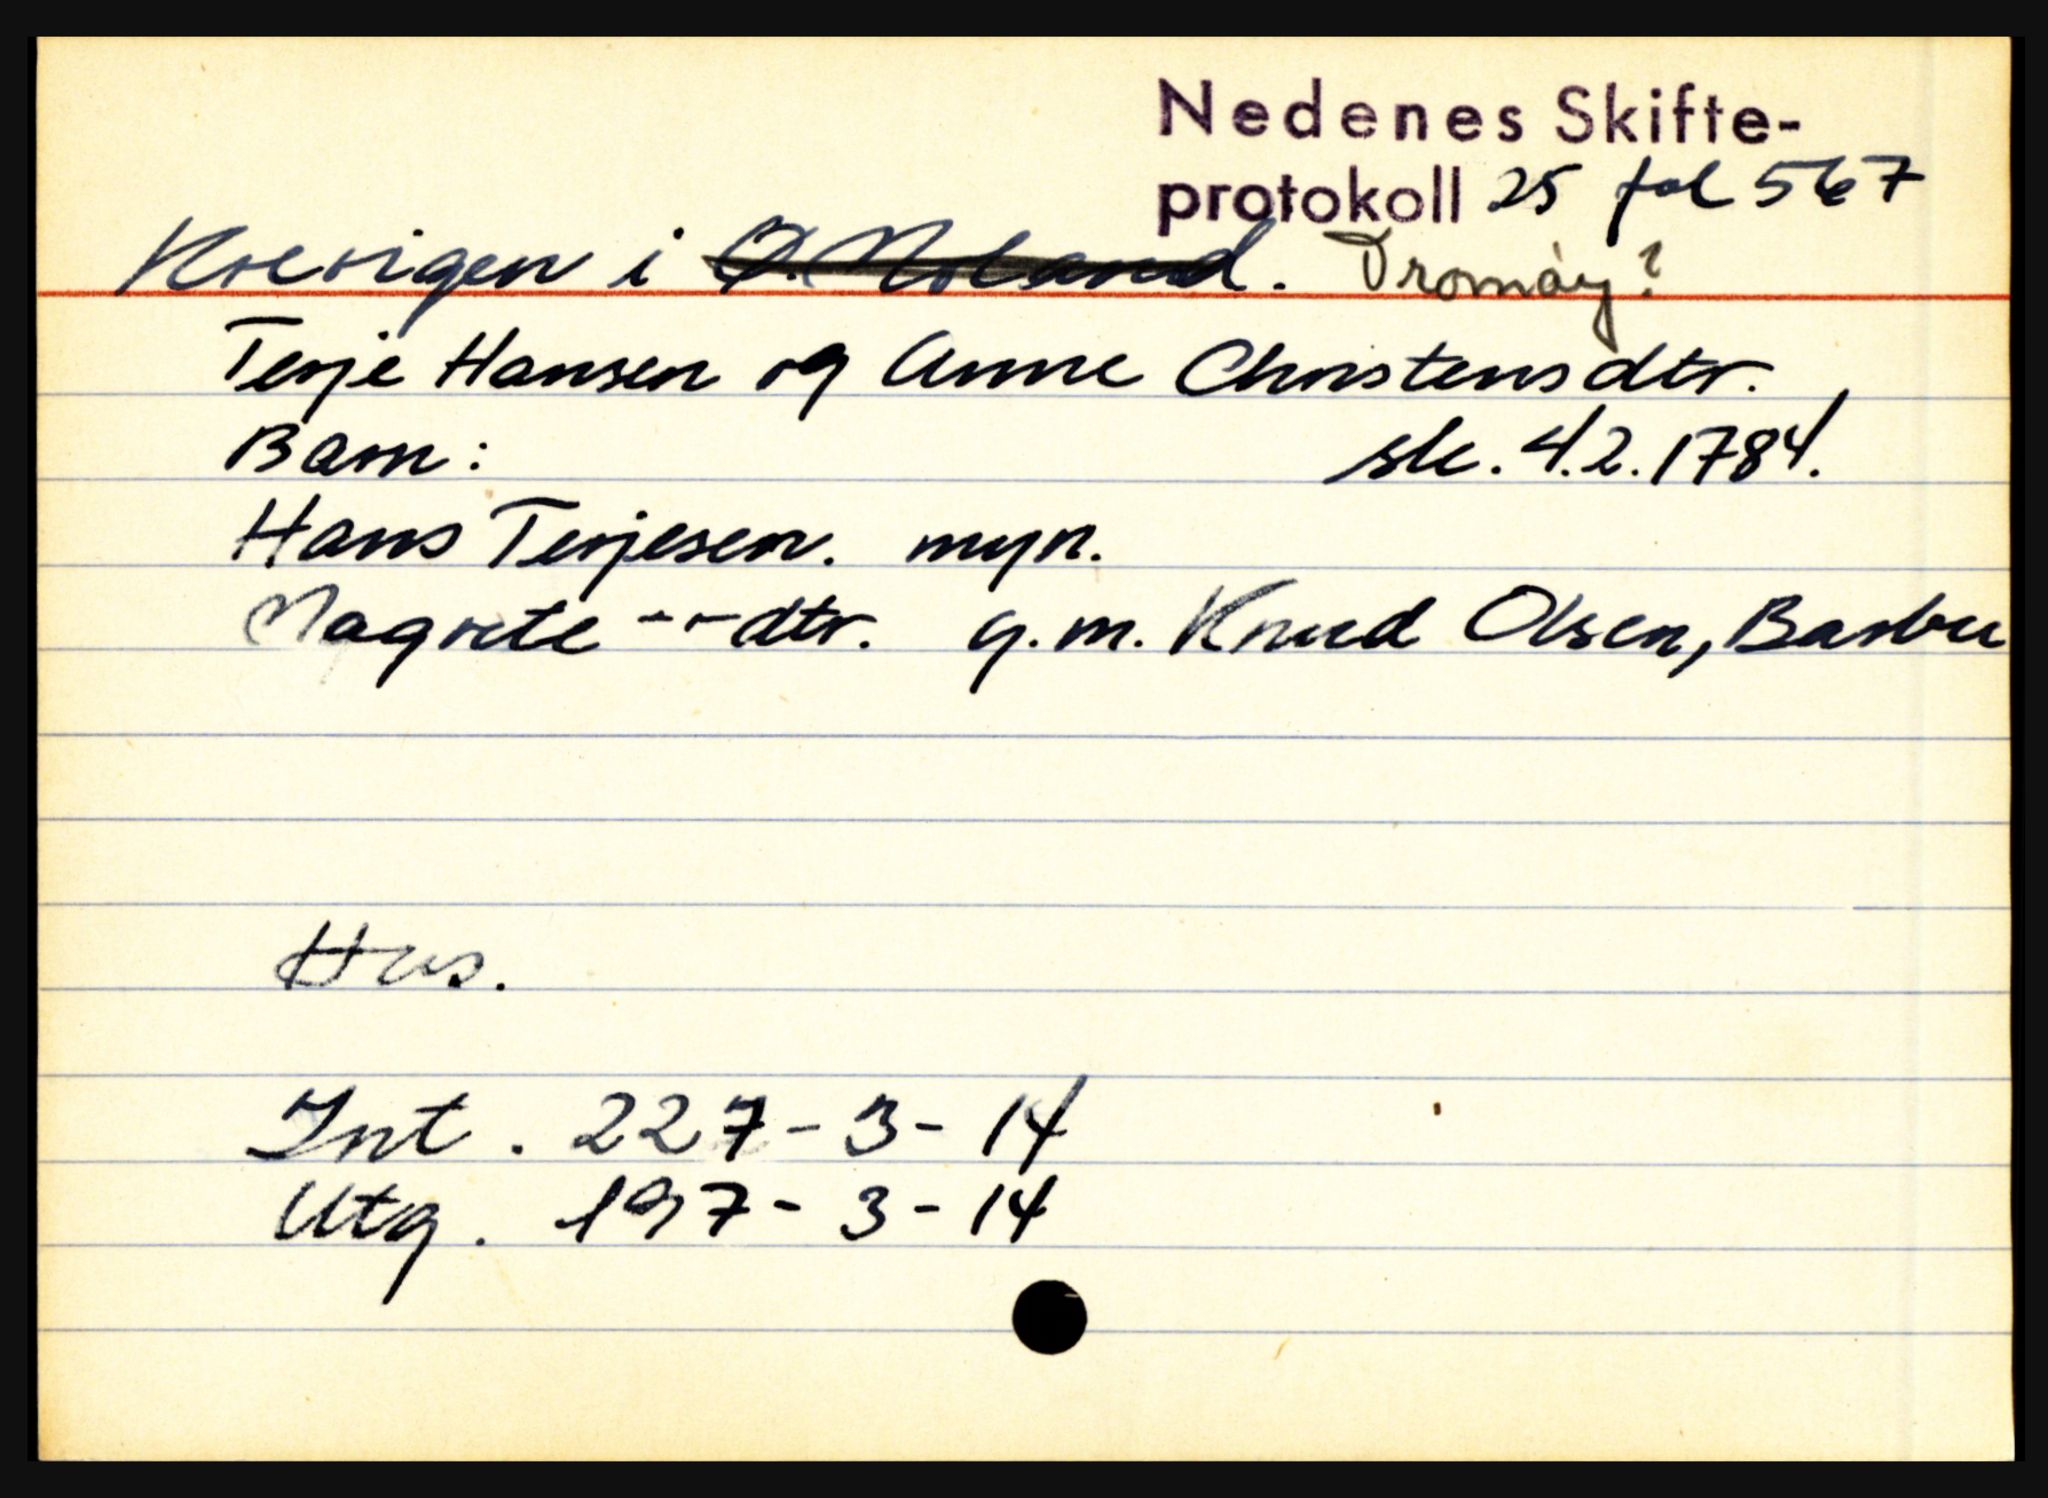 Nedenes Skifte-
protokoll 25 fol 567
i Ø. Moland. Tromøy?
Terje Hansen og Anne Christensdtr.
Barn: sk. 4.2.1784.
Hans Terjesen. myn.
Magrete -"-dtr. g.m. Knud Olsen, Barbu
Hus.
Int. 227-3-14
Utg. 197-3-14